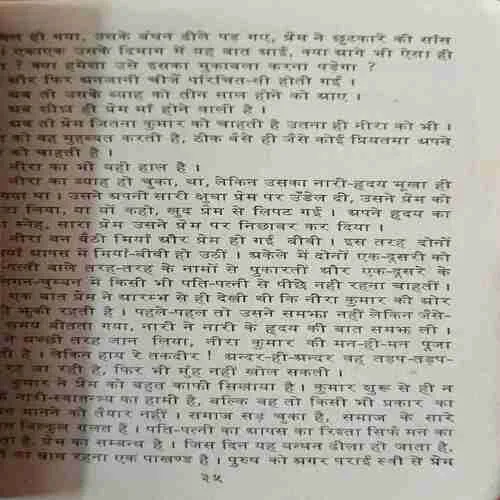 हो गया, उसके बंधन ढीले पड़ गए, प्रेम ने छुटकारे की साँस
एकाएक उसके दिमाग में यह बात आई, क्या आगे भी ऐसा ही
? क्या हमेशा उसे इसका मुकाबला करना पड़ेगा ?
और फिर अनजानी चीजें परिचित-सी होती गईं ।
अब तो उसके ब्याह को तीन साल होने को आए ।
अब शीघ्र ही प्रेम माँ होने वाली है ।
अब तो प्रेम जितना कुमार को चाहती है उतना ही नीरा को भी ।
को वह मुहब्बत करती है, ठीक वैसे ही जैसे कोई प्रियतमा अपने
को चाहती है ।
नीरा का भी वही हाल है ।
नीरा का ब्याह हो चुका, था, लेकिन उसका नारी-हृदय भूखा ही
गया था । उसने अपनी सारी क्षुधा प्रेम पर उँडेल दी, उसने प्रेम को
लिया, या यों कहो, खुद प्रेम से लिपट गई । अपने हृदय का
स्नेह, सारा प्रेम उसने प्रेम पर निछावर कर दिया ।
नीरा बन बैठी मियाँ और प्रेम हो गई बीबी । इस तरह दोनों
आपस में मियाँ-बीवी हो उठीं । अकेले में दोनों एक-दूसरी को
वाले तरह-तरह के नामों से पुकारतीं और एक-दूसरे के
में किसी भी पति-पत्नी से पीछे नहीं रहना चाहतीं ।
एक बात प्रेम ने आरम्भ से ही देखी थी कि नीरा कुमार की ओर
झुकी रहती है । पहले-पहल तो उसने समझा नहीं लेकिन जैसे-
समय बीतता गया, नारी ने नारी के हृदय की बात समझ ली ।
ने अच्छी तरह जान लिया, नीरा कुमार की मन-ही-मन पूजा
है । लेकिन हाय रे तकदीर ! अन्दर-ही-अन्दर वह तड़प-तड़प-
रह जा रही है, फिर भी मुँह नहीं खोल सकती ।
कुमार ने प्रेम को बहुत काफी सिखाया है । कुमार शुरू से ही न
नारी-स्वातन्त्र्य का हामी है, बल्कि वह तो किसी भी प्रकार का
मानने को तैयार नहीं । समाज सड़ चुका है, समाज के सारे
बिल्कुल ग़लत हैं । पति-पत्नी का आपस का रिश्ता सिर्फ मन का
है, प्रेम का सम्बन्ध है । जिस दिन यह बन्धन ढीला हो जाता है,
का साथ रहना एक पाखण्ड है । पुरुष को अगर पराई स्त्री से प्रेम
२५